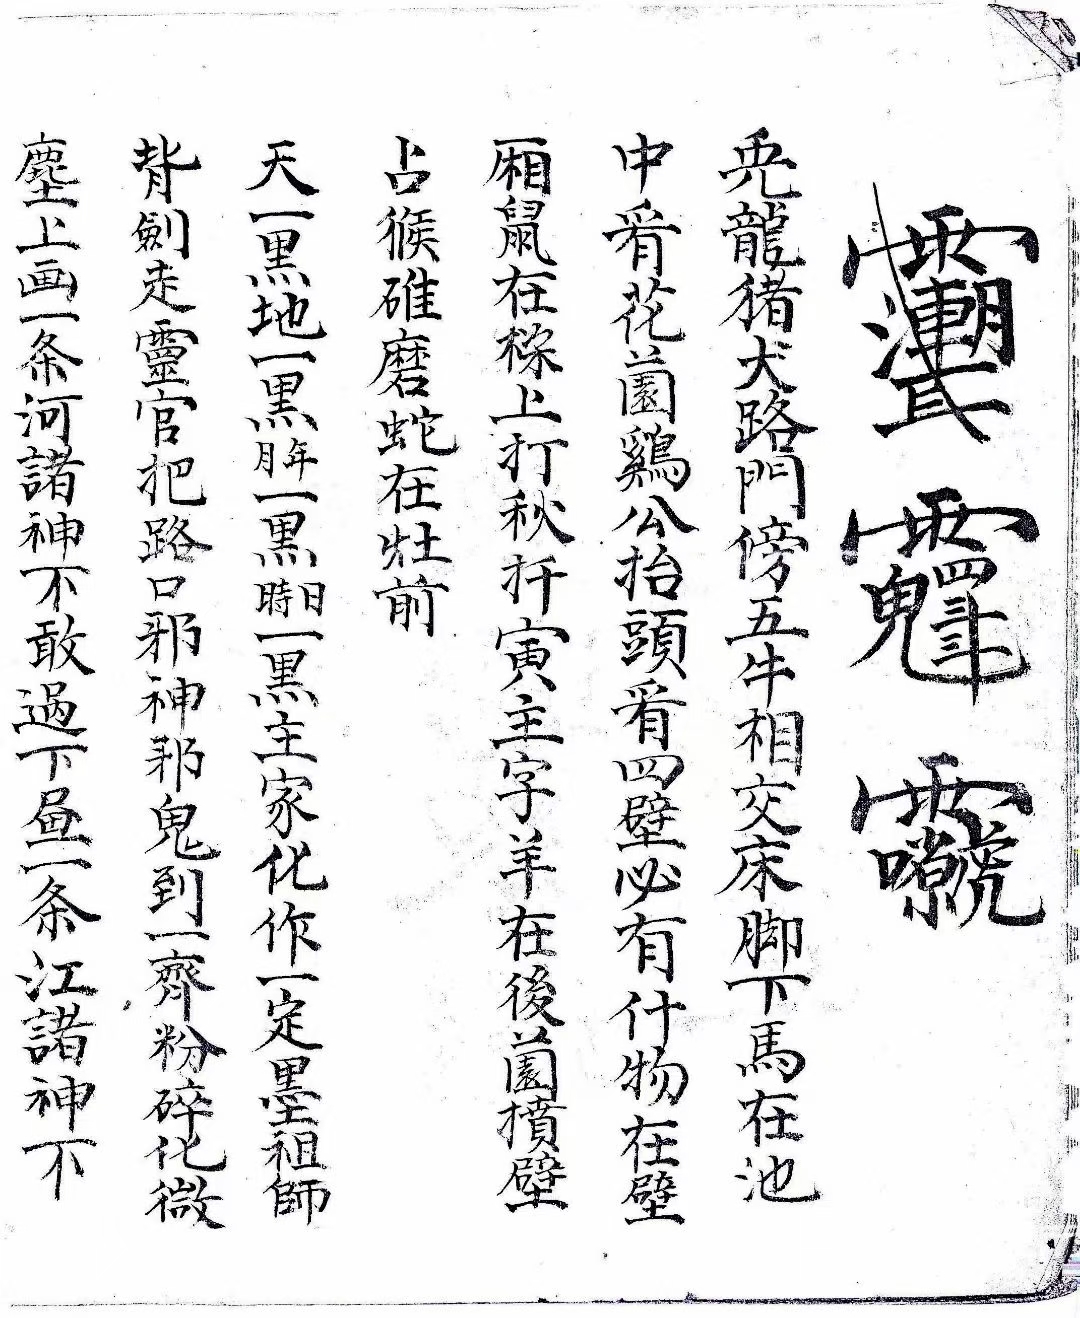 兎龍猪犬路門傍五牛相交床脚下馬在池
中看花薗鷄公抬頭看四壁必有什物在壁
厢鼠在樑上打秋扦寅主字羊在後薗墳壁
占猴碓磨蛇在灶前
天一黒地一黒年月一黒日時一黒主家化作一定墨祖師
背劍走靈官把路口邪神邪鬼到一齊粉碎化微
塵上画一条河諸神不敢過下畫一条江諸神不